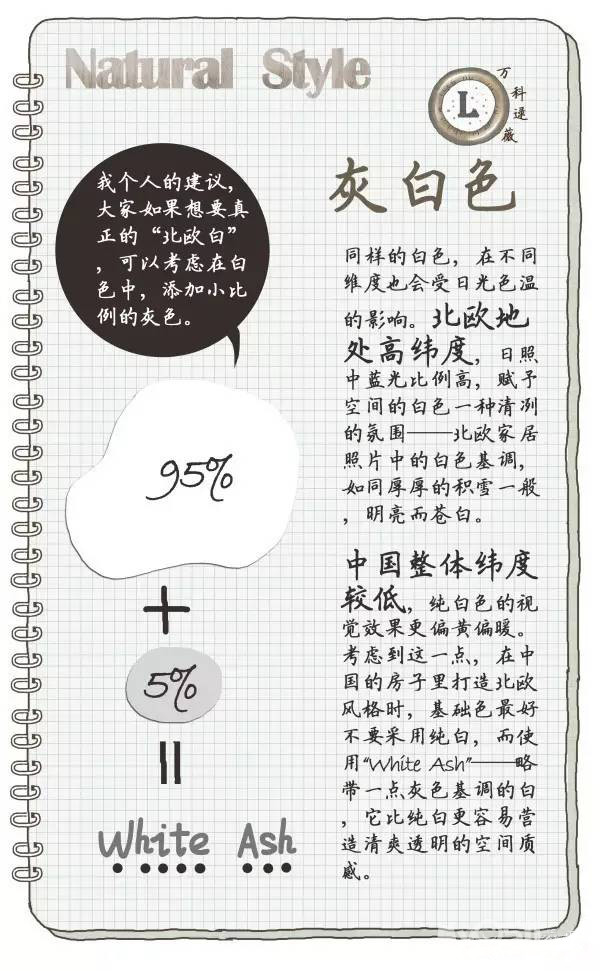 Natural Style
L
万科遥薇
灰白色
我个人的建议，
大家如果想要真
正的“北欧白”
，可以考虑在白
色中，添加小比
例的灰色。
95%
+
5%
=
White Ash
同样的白色，在不同
维度也会受日光色温
的影响。北欧地
处高纬度，日照
中蓝光比例高，赋予
空间的白色一种清冽
的氛围——北欧家居
照片中的白色基调，
如同厚厚的积雪一般
，明亮而苍白。
中国整体纬度
较低，纯白色的视
觉效果更偏黄偏暖。
考虑到这一点，在中
国的房子里打造北欧
风格时，基础色最好
不要采用纯白，而使
用“White Ash”——略
带一点灰色基调的白
，它比纯白更容易营
造清爽透明的空间质
感。